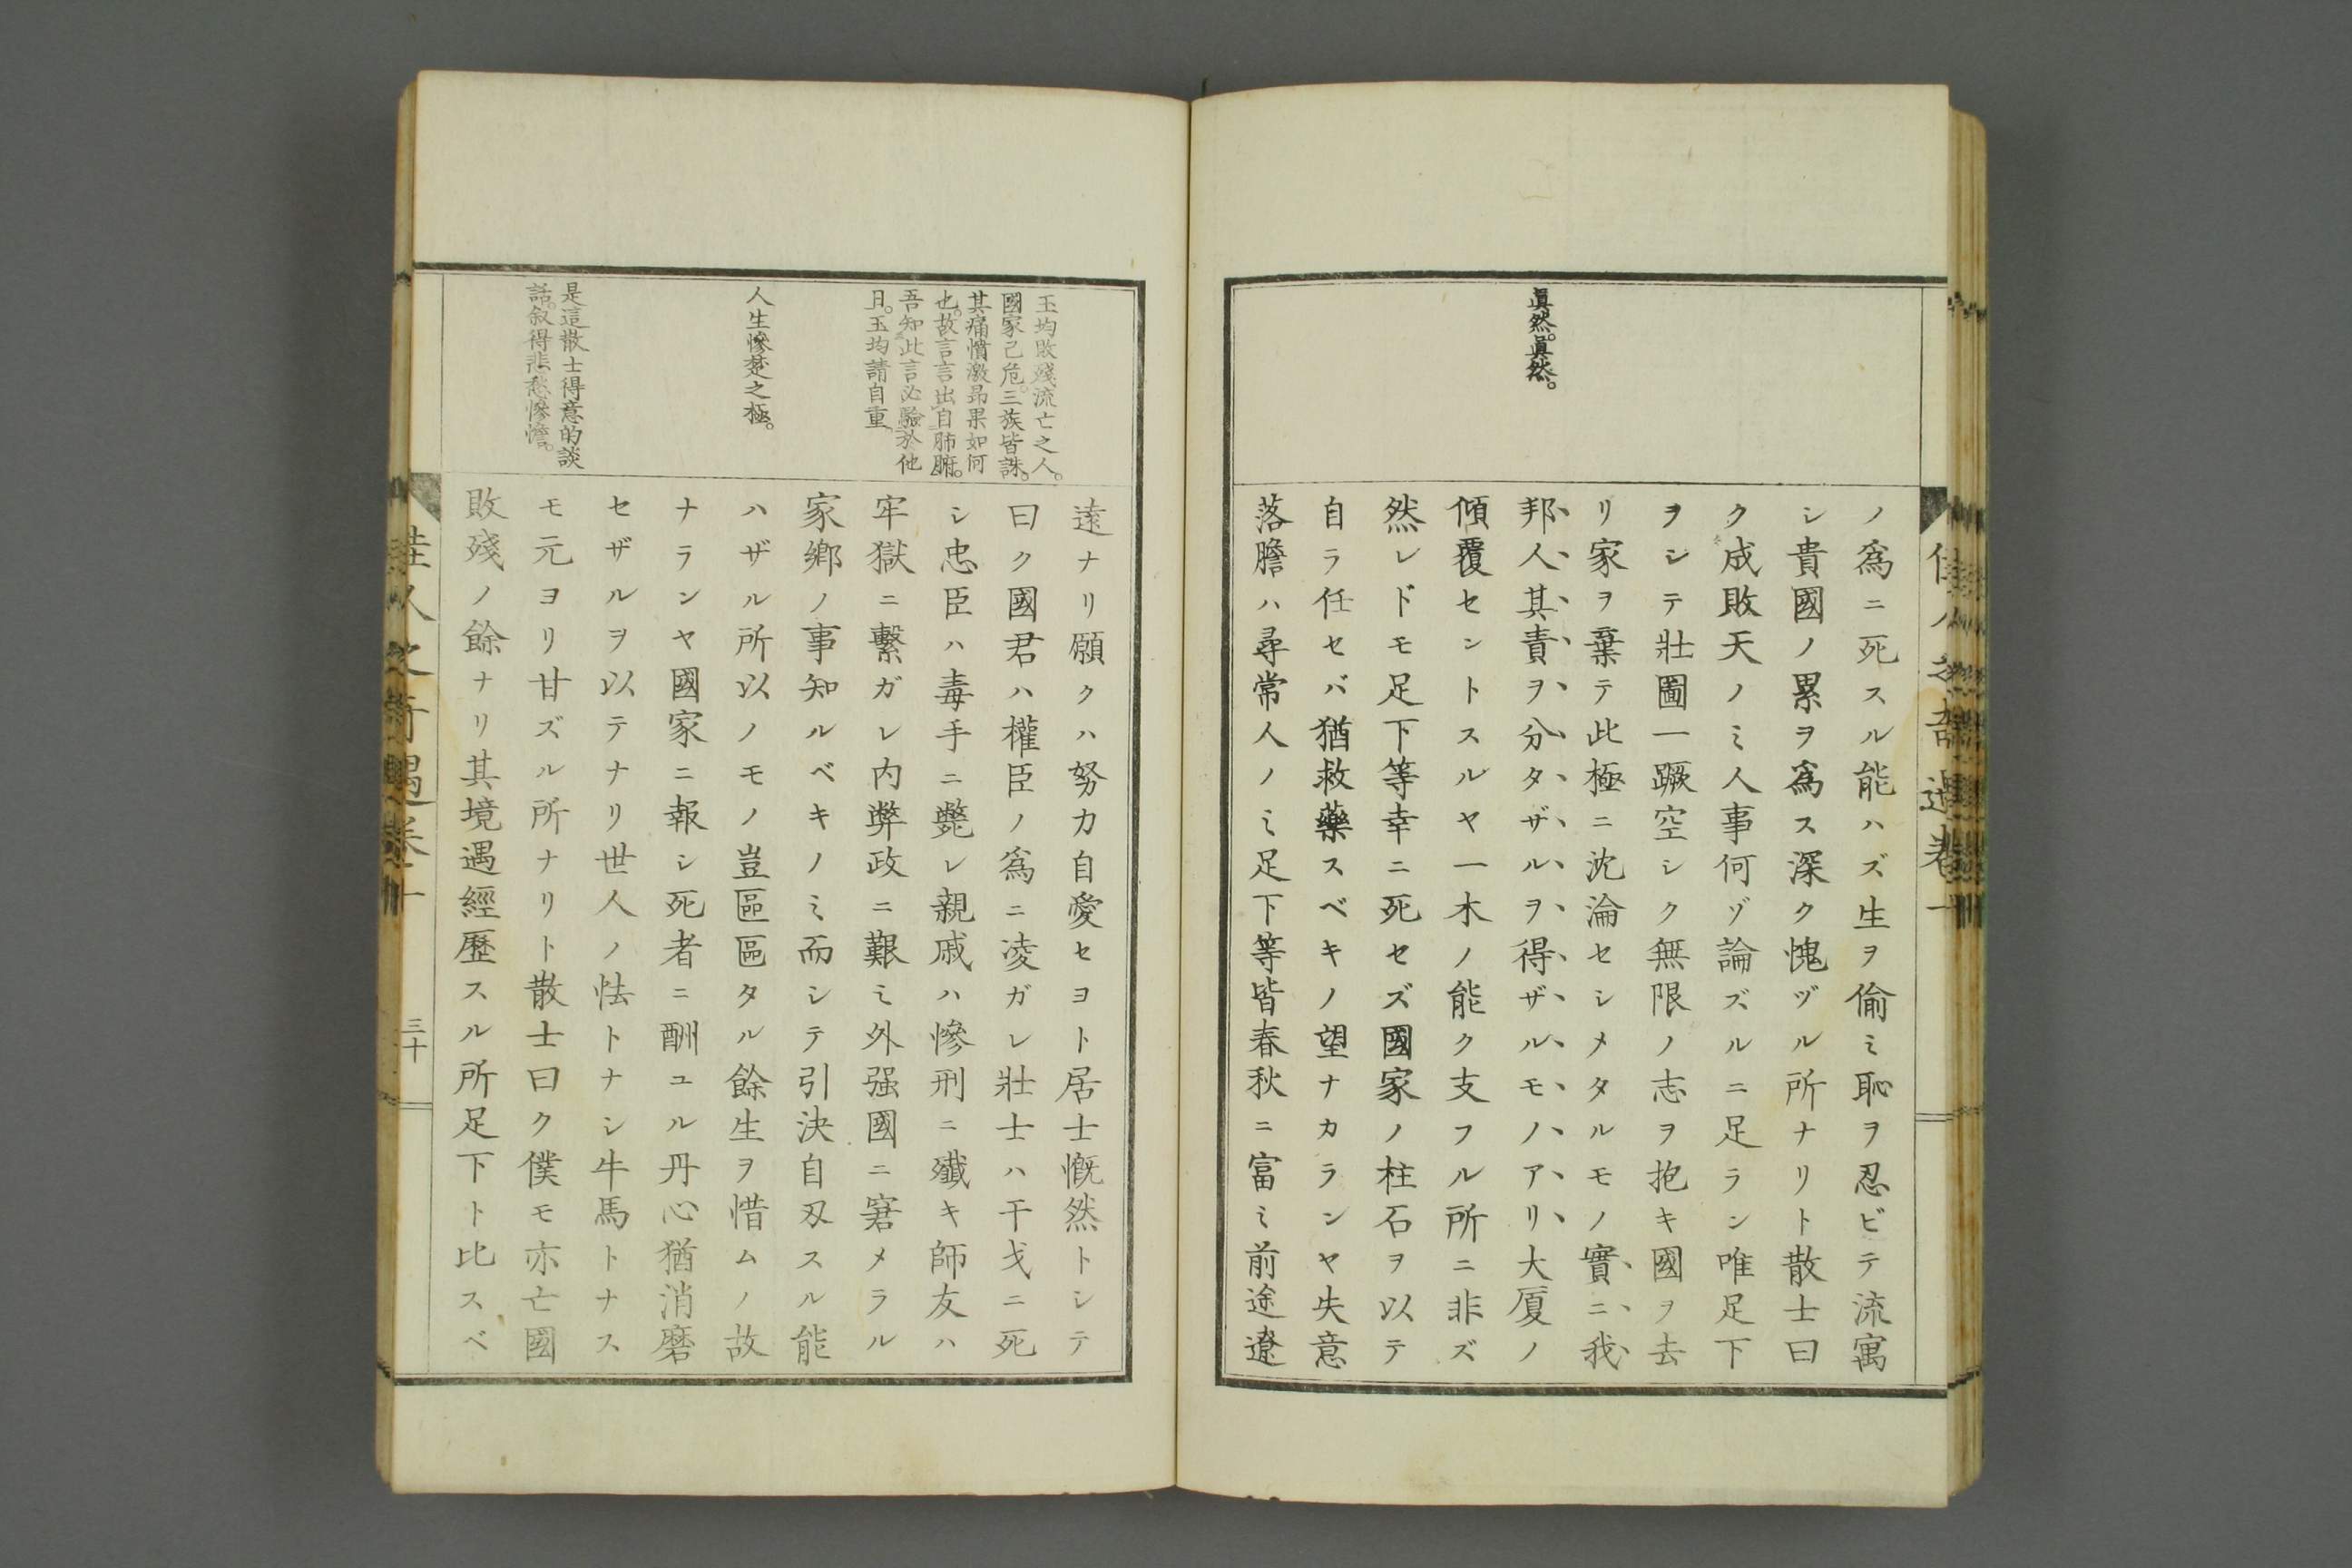 眞然。眞然。
ノ爲ニ死スル能ハズ生ヲ偷ミ恥ヲ忍ビテ流寓
シ貴國ノ累ヲ爲ス深ク愧ヅル所ナリト散士曰
ク成敗天ノミ人事何ゾ論ズルニ足ラン唯足下
ヲシテ壯圖一蹶空シク無限ノ志ヲ抱キ國ヲ去
リ家ヲ棄テ此極ニ沈淪セシメタルモノ實ニ我
邦人其責ヲ分タザルヲ得ザルモノアリ大厦ノ
傾覆セントスルヤ一木ノ能ク支フル所ニ非ズ
然レドモ足下等幸ニ死セズ國家ノ柱石ヲ以テ
自ラ任セバ猶救藥スベキノ望ナカランヤ失意
落膽ハ尋常人ノミ足下等皆春秋ニ富ミ前途遼
玉均敗殘流亡之人。
國家已危。三族皆誅。
其痛憤激昻果如何
也。故言言出自肺腑。
吾知此言必驗於他
日。玉均請自重。
人生慘楚之極。
是這散士得意的談
話。叙得悲愁慘憺。
遠ナリ願クハ努力自愛セヨト居士慨然トシテ
曰ク國君ハ權臣ノ爲ニ凌ガレ壯士ハ干戈ニ死
シ忠臣ハ毒手ニ斃レ親戚ハ慘刑ニ殲キ師友ハ
牢獄ニ繫ガレ内弊政ニ艱ミ外强國ニ窘メラル
家鄕ノ事知ルベキノミ而シテ引決自刄スル能
ハザル所以ノモノ豈區區タル餘生ヲ惜ムノ故
ナランヤ國家ニ報シ死者ニ酬ユル丹心猶消磨
セザルヲ以テナリ世人ノ怯トナシ牛馬トナス
モ元ヨリ甘ズル所ナリト散士曰ク僕モ亦亡國
敗殘ノ餘ナリ其境遇經歷スル所足下ト比スベ
佳人之奇遇卷十
三十